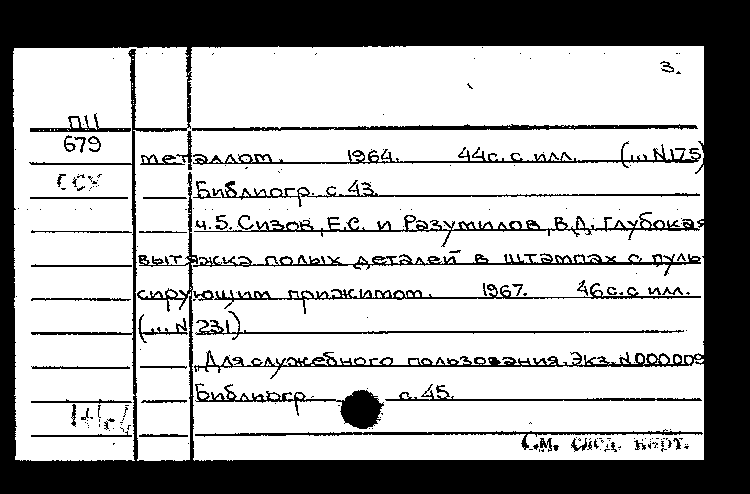 3.
П11
679 металлом. 1964. 44с. с илл. (... N175)
ССУ Библиогр. с. 43.
ч.5. Сизов, Е.С. и Разумилов, В.Д. Глубокая
вытяжка полых деталей в штампах с пуль-
сирующим прижимом. 1967. 46с. с илл.
(... N 231).
Для служебного пользования. Экз. N000009
Библиогр. с. 45.
См. след. карт.